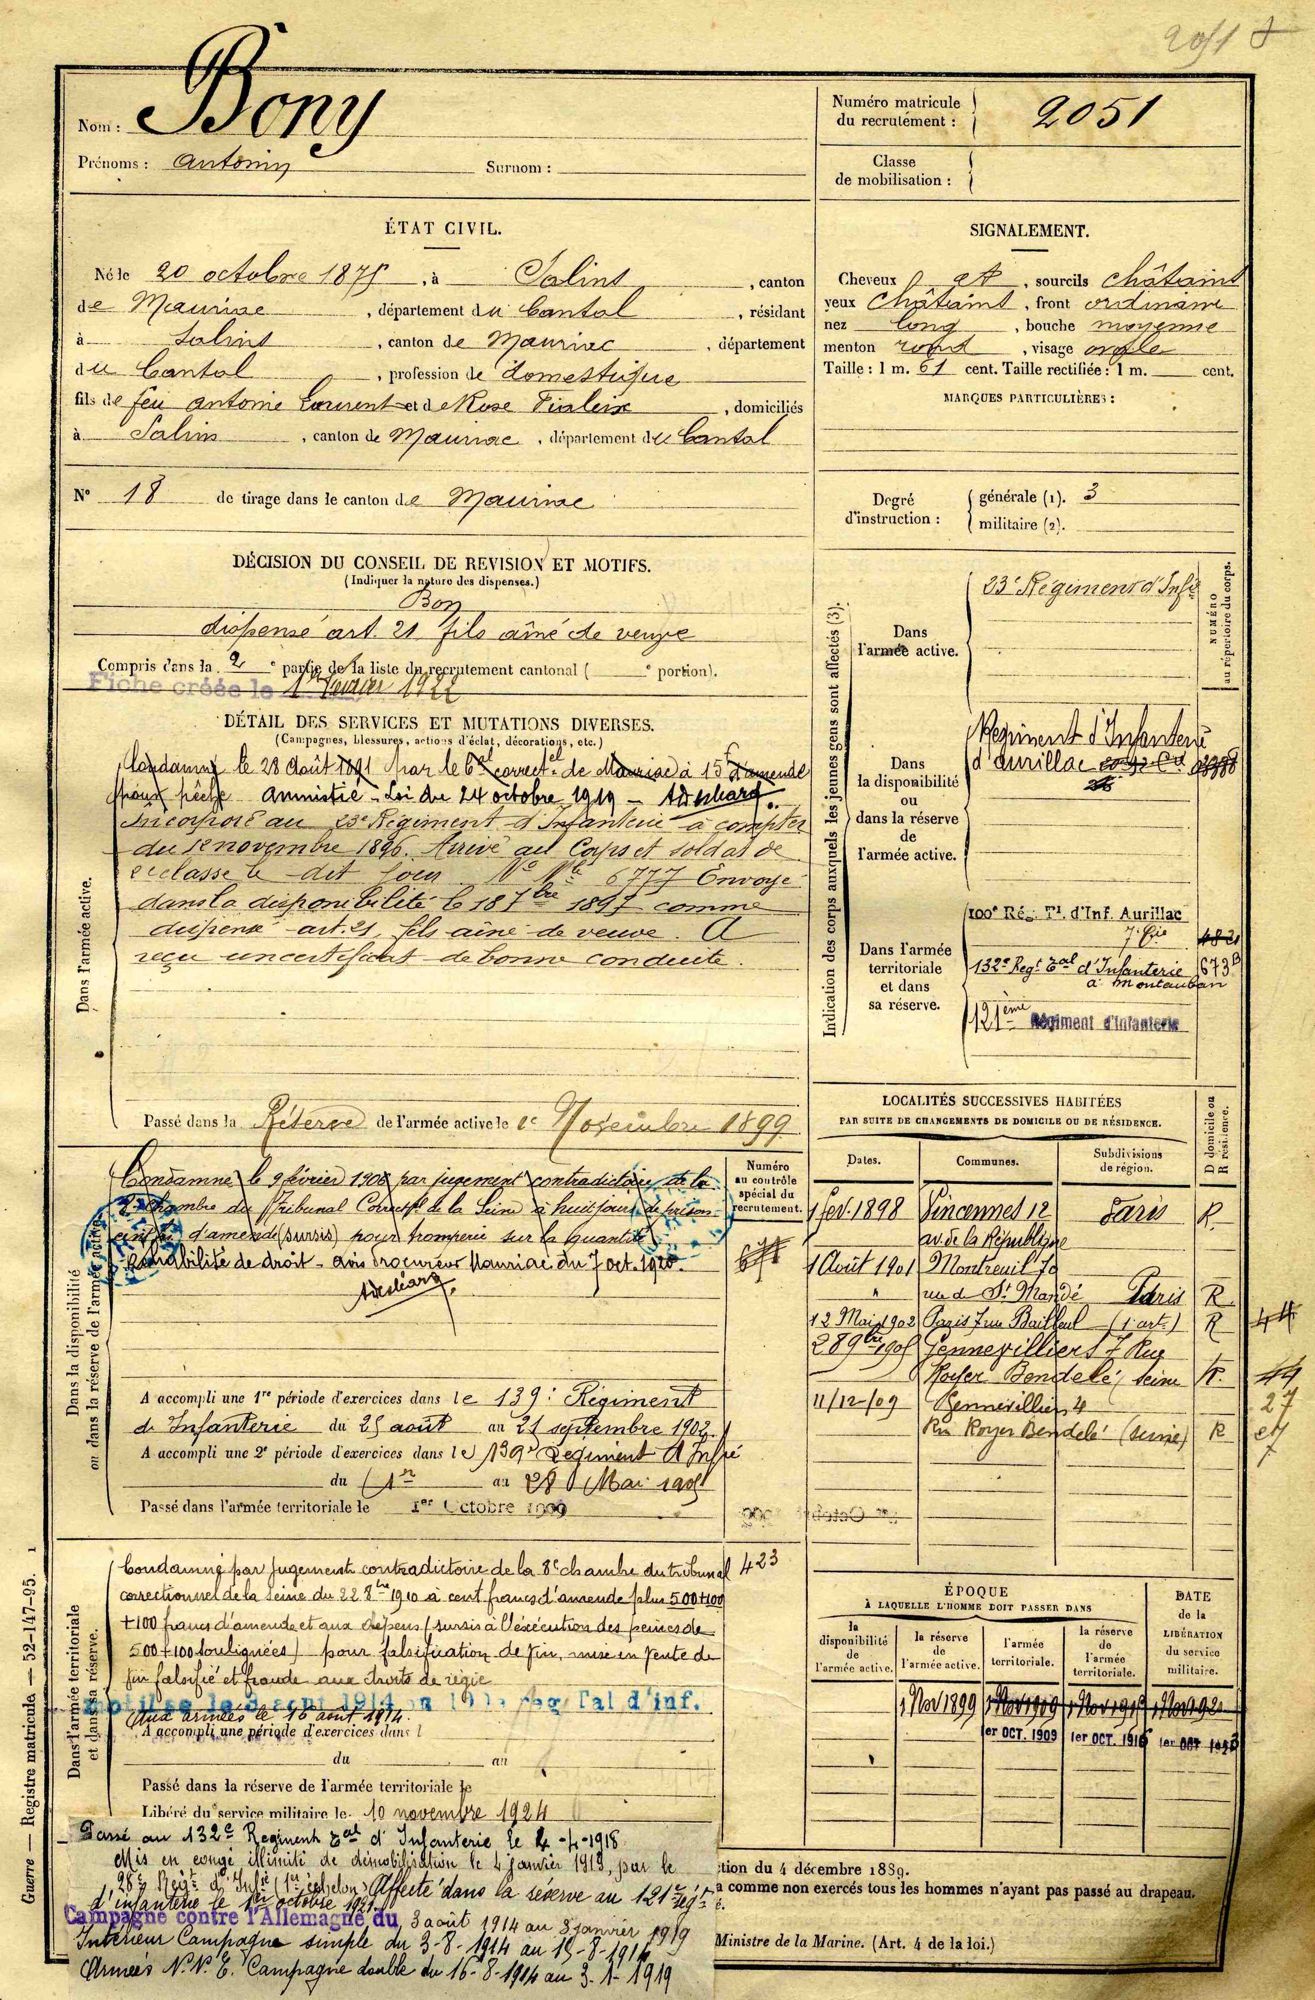 2051
Nom : Bony
Prénoms : Antonin Surnom :
Numéro matricule du recrutement : 2051
Classe de mobilisation :
ÉTAT CIVIL.
Né le 20 octobre 1875, à Salins, canton
de Mauriac, département du Cantal, résidant
à Salins, canton de Mauriac, département
du Cantal, profession de domestique
fils de feu Antoine Laurent et de Rose Fialeix, domiciliés
à Salins, canton de Mauriac, département du Cantal
N° 18 de tirage dans le canton de Mauriac
SIGNALEMENT.
Cheveux et, sourcils châtains
yeux châtains, front ordinaire
nez long, bouche moyenne
menton rond, visage ovale
Taille : 1 m. 61 cent. Taille rectifiée : 1 m. cent.
MARQUES PARTICULIÈRES :
Degré d'instruction :
générale (1). 3
militaire (2).
DÉCISION DU CONSEIL DE REVISION ET MOTIFS.
(Indiquer la nature des dispenses.)
Bon
dispensé art. 21 fils aîné de veuve
Compris dans la 2e partie de la liste du recrutement cantonal ( e portion).
Fiche créée le 1er février 1922
DÉTAIL DES SERVICES ET MUTATIONS DIVERSES.
(Campagnes, blessures, actions d'éclat, décorations, etc.)
Dans l'armée active.
Condamné le 28 Août 1891 par le tal correctel de Mauriac à 15f d'amende
pour pêche amnistié - Loi du 24 octobre 1919 -
Incorporé au 23e Régiment d'Infanterie à compter
du 12 novembre 1896. Arrivé au Corps et soldat de
2e classe le dit jour. No Mle 6777 Envoyé
dans la disponibilité le 18 7bre 1897 comme
dispensé art. 21, fils aîné de veuve. A
reçu un certificat de bonne conduite.
Passé dans la Réserve de l'armée active le 1er Novembre 1899
Indication des corps auxquels les jeunes gens sont affectés (3).
NUMÉRO au répertoire du corps.
Dans l'armée active.
23e Régiment d'Infie
Dans la disponibilité ou dans la réserve de l'armée active.
Régiment d'Infanterie
d'Aurillac
Dans l'armée territoriale et dans sa réserve.
100e Rég. Tl d'Inf. Aurillac
7e Cie
132e Regt Tal d'Infanterie 673B
à Montauban
121ème Régiment d'Infanterie
Dans la disponibilité ou dans la réserve de l'armée active.
Numéro au contrôle spécial du recrutement.
Condamné le 9 février 1906 par jugement contradictoire de la
chambre du Tribunal Correctl de la Seine à huit jours de prison
d'amende (sursis) pour tromperie sur la quantité
Réhabilité de droit - avis procureur Mauriac du 7 oct. 1920.
A accompli une 1re période d'exercices dans le 139e Régiment
d'Infanterie du 25 août au 21 septembre 1902
A accompli une 2e période d'exercices dans le 139e Régiment d'Infie
du 1er au 28 Mai 1905
Passé dans l'armée territoriale le 1er Octobre 1909
LOCALITÉS SUCCESSIVES HABITÉES
PAR SUITE DE CHANGEMENTS DE DOMICILE OU DE RÉSIDENCE.
Dates. Communes. Subdivisions de région. D domicile ou R résidence.
1 fev. 1898 Vincennes 12 Paris R.
av. de la République
1 Août 1901 Montreuil 70
" rue de St Mandé Paris R
12 Mai 1902 Paris 7 rue Bailleul (1 art.) R 44
28 9bre 1905 Gennevilliers 7 Rue
Royer Bendelé, Seine R. 49
11/12/09 Gennevilliers 4 27
Rue Royer Bendelé (Seine) R et
7
Dans l'armée territoriale et dans sa réserve.
Condamné par jugement contradictoire de la 8e chambre du tribunal 423
correctionnel de la Seine du 22 8bre 1910 à cent francs d'amende plus 500+100
+100 francs d'amende et aux dépens (sursis à l'exécution des peines de
500+100 soulignées) pour falsification de vin, mise en vente de
vin falsifié et fraude aux droits de régie
Mobilisé le 3 août 1914 au 100e rég Tal d'inf.
Aux armées le 16 août 1914.
A accompli une période d'exercices dans l
du au
Passé dans la réserve de l'armée territoriale le
Libéré du service militaire le 10 novembre 1924
Passé au 132e Regiment Tal d'Infanterie le 4-4-1918
Mis en congé illimité de démobilisation le 4 janvier 1919, par le
28e Régt d'Infie (1er échelon) Affecté dans la réserve au 121e régt
d'infanterie le 1er octobre 1921
Campagne contre l'Allemagne du 3 août 1914 au 3 janvier 1919
Intérieur Campagne simple du 3-8-1914 au 15-8-1914
Armées N.N.E. Campagne double du 16-8-1914 au 3-1-1919
ÉPOQUE
À LAQUELLE L'HOMME DOIT PASSER DANS
la disponibilité de l'armée active.
la réserve de l'armée active.
l'armée territoriale.
la réserve de l'armée territoriale.
DATE de la LIBÉRATION du service militaire.
1 Nov 1899 1 Nov 1909 1 Nov 1915 1 Nov 1921
1er OCT. 1909 1er OCT. 1916 1er OCT
ction du 4 décembre 1889.
a comme non exercés tous les hommes n'ayant pas passé au drapeau.
Ministre de la Marine. (Art. 4 de la loi.)
Guerre — Registre matricule. — 52-147-95.